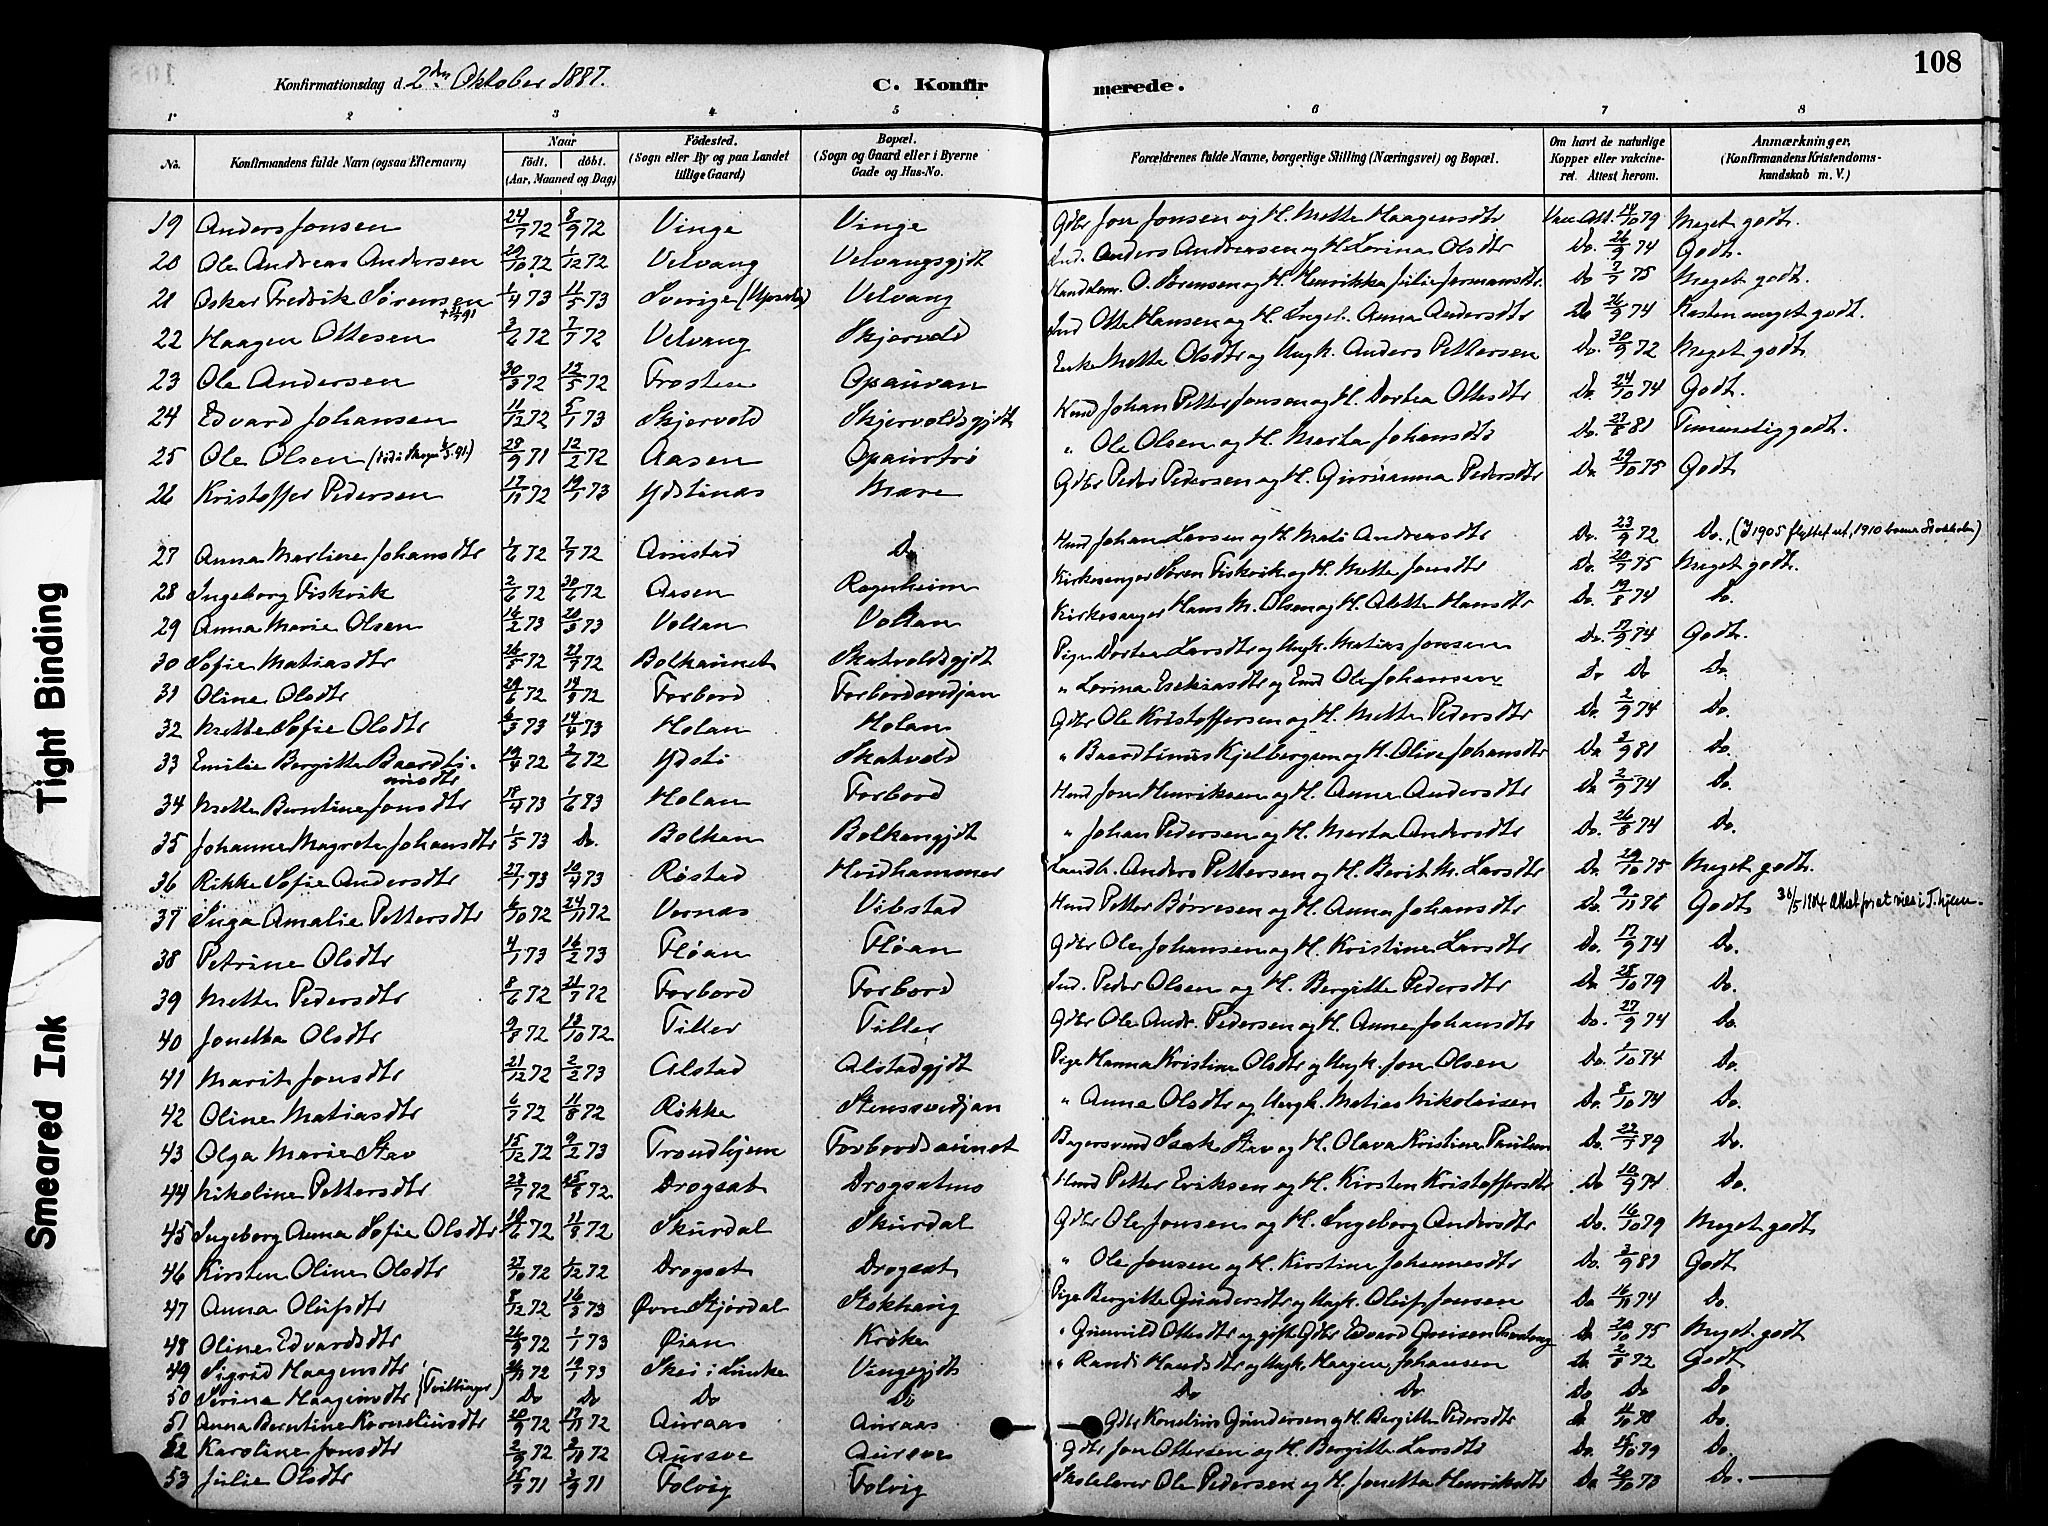 108
Konfirmationsdag d. 2den Oktober 1887. C. Konfirmerede.
1 2 3 4 5 6 7 8
No. Konfirmandens fulde Navn (ogsaa Efternavn) Naar født. døbt. (Aar, Maaned og Dag) Fødested. (Sogn eller By og paa Landet tillige Gaard) Bopæl. (Sogn og Gaard eller i Byerne Gade og Hus-No. Forældrenes fulde Navne, borgerlige Stilling (Næringsvei) og Bopæl. Om havt de naturlige Kopper eller vakcineret. Attest herom. Anmærkninger, (Konfirmandens Kristendomskundskab m. V.)
19 Anders Jonsen 24/7 72 8/9 72 Vinge Vinge Gdbr Jon Jonsen og H. Mette Haagensdtr Vac. Att. 14/10 79 Meget godt.
20 Ole Andreas Andersen 20/10 72 1/12 72 Velvang Velvangsgjdt Ind. Anders Andreasen og H. Lorina Olsdtr Do. 26/9 74 Godt.
21 Oskar Fredrik Sørensen 1/4 73 11/5 73 Sverige (Upsala) Velvang Handelsm. O. Sørensen og H. Henrikka Julie Do 7/7 75 Meget godt.
22 Haagen Ottesen 3/6 72 7/7 72 Velvang Skjervold Ind Otte Hansen og H. Ingeb. Anna Andersdtr Do 26/9 74 Næsten meget godt.
23 Ole Andersen 30/3 72 12/5 72 Frosten Opauran Enke Mette Olsdtr og Ungk. Anders Pettersen Do. 30/9 72 Meget godt.
24 Edvard Johansen 11/12 72 5/1 73 Skjervold Skjervoldsgjdt Hmd Johan Petter Jonsen og H. Dortea Ottesdtr Do. 24/10 74 Godt.
25 Ole Olsen 28/9 71 12/2 72 Aasen Opaurtrø " Ole Olsen og H. Marta Johansdtr Do. 27/8 81 Temmelig godt.
26 Kristoffer Pedersen 17/11 72 19/1 73 Ydstinæs Mære Gdbr Peder Pedersen og H. Gurianna Pedersdtr Do 29/10 75 Godt
27 Anna Martine Johansdtr 1/6 72 7/7 72 Arnstad Do Hmd Johan Larsen og H. Mali Andreasdtr Do. 23/9 72 Do. (I 1905 flyttet ut, 1910 Stokholm)
28 Ingeborg Fiskvik 2/6 72 30/6 72 Aasen Ragnheim Kirkesanger Søren Fiskvik og H. Mette Jonsdtr Do. 20/7 75 Meget godt.
29 Anna Marie Olsen 16/2 73 20/3 73 Vollan Vollan Kirkesanger Hans M. Olsen og H. Alette Hansdtr Do. 19/8 74 Do.
30 Sofie Matiasdtr 26/5 72 21/7 72 Bolkaunet Skatvoldsgjdt Pige Dortea Larsdtr og Ungk. Matias Jonsen Do. 17/9 74 Godt.
31 Oline Olsdtr 29/6 72 14/9 72 Forbord Forbordsvedjan " Lorina Esekiasdtr og Emd Ole Johansen Do Do Do.
32 Mette Sofie Olsdtr 6/3 73 14/4 73 Holan Holan Gdbr Ole Kristoffersen og H. Mette Pedersdtr Do. 2/9 74 Do.
33 Emilie Bergitte Baardtinusdtr 19/4 72 2/6 72 Ydsti Skatvold " Baardtinus Kjelbergsen og H. Olive Johansdtr Do 3/9 81 Do.
34 Mette Berntine Jonsdtr 18/4 73 1/6 73 Holan Forbord Hmd Jon Henriksen og H. Anne Andersdtr Do 2/9 74 Do.
35 Johanne Magreta Johansdtr 1/5 73 Do. Bolkan Bolkangjdt " Johan Pedersen og H. Marta Andersdtr Do. 26/8 74 Do.
36 Rikke Sofie Andersdtr 27/1 73 10/4 73 Røstad Hvidhammer Landh. Anders Pettersen og H. Berit M. Larsdtr Do. 29/10 75 Meget godt.
37 Inga Amalie Pettersdtr 6/10 72 24/11 72 Vernæs Vibstad Hmd Petter Børresen og H. Anna Johansdtr Do. 9/11 76 Godt 30/5 1904 Attest for at vies i T.hjem.
38 Petrine Olsdtr 4/1 73 16/2 73 Fløan Fløan Gdbr Ole Johansen og H. Kristine Larsdtr Do. 17/9 74 Do.
39 Mette Pedersdtr 8/6 72 21/7 72 Forbord Forbord Ind. Peder Olsen og H. Bergitte Pedersdtr Do 28/10 79 Do.
40 Jonetta Olsdtr 9/8 72 13/10 72 Tiller Tiller Gdbr Ole Andr. Pedersen og H. Anne Johansdtr Do. 27/9 74 Do.
41 Marit Jonsdtr 21/12 72 2/2 73 Alstad Alstadgjdt Pige Hanna Kristine Olsdtr og Ungk. Jon Olsen Do. 1/10 74 Do.
42 Oline Matiasdtr 6/7 72 11/8 72 Røkke Stensvedjan " Anne Olsdtr og Ungk. Matias Nikolaisen Do. 8/10 74 Do.
43 Olga Marie Stav 15/12 72 9/2 73 Trondhjem Forbordsaunet Bagersvend Isak Stav og H. Olava Kristine Paulsen Do. 22/7 89 Do.
44 Nikoline Pettersdtr 23/7 72 25/8 72 Drogsat Drogsatmo Hmd Petter Eriksen og H. Kirsten Kristoffersdtr Do. 10/9 74 Do.
45 Ingeborg Anna Sofie Olsdtr 18/6 72 11/8 72 Skurdal Skurdal Gdbr Ole Jonsen og H. Ingeborg Andersdtr Do. 16/10 79 Meget godt
46 Kirsten Oline Olsdtr 27/10 72 1/12 72 Drogsat Drogsat " Ole Jonsen og H. Kirstine Johannesdtr Do. 3/9 81 Godt
47 Anna Olufsdtr 8/12 72 16/3 73 Øvre Stjørdal Stokhaug Pige Bergitte Gundersdtr og Ungk. Oluf Jonsen Do 16/11 74 Do.
48 Oline Edvardsdtr 26/9 72 1/1 73 Øian Krøke " Gunvild Ottesdtr og gift Gdbr Edvard Do 20/10 75 Meget godt
49 Sigrid Haagensdtr 72 19/1 73 Skei i Vingegjdt " Randi og Ungk. Haagen Johansen Do 2/8 72 Godt
50 Serina Haagensdtr (Tvillinger) Do Do Do Do Do Do Do Do Do
51 Anna Berntine Korneliusdtr 20/9 72 17/11 72 Auraas Auraas Gdbr Kornelius Gundersen og H. Bergitte Pedersdtr Do 11/10 78 Do.
52 Karoline Jonsdtr 2/9 72 3/11 72 Aursve Aursve Gdbr Jon Ottersen og H. Bergitte Larsdtr Do. 15/10 79 Do.
53 Julie Olsdtr 15/7 71 3/9 71 Folvig Folvig Skolelærer Ole Pedersen og H. Jonetta Henriksdtr Do. 20/10 73 Do.
Tight Binding
Smeared Ink